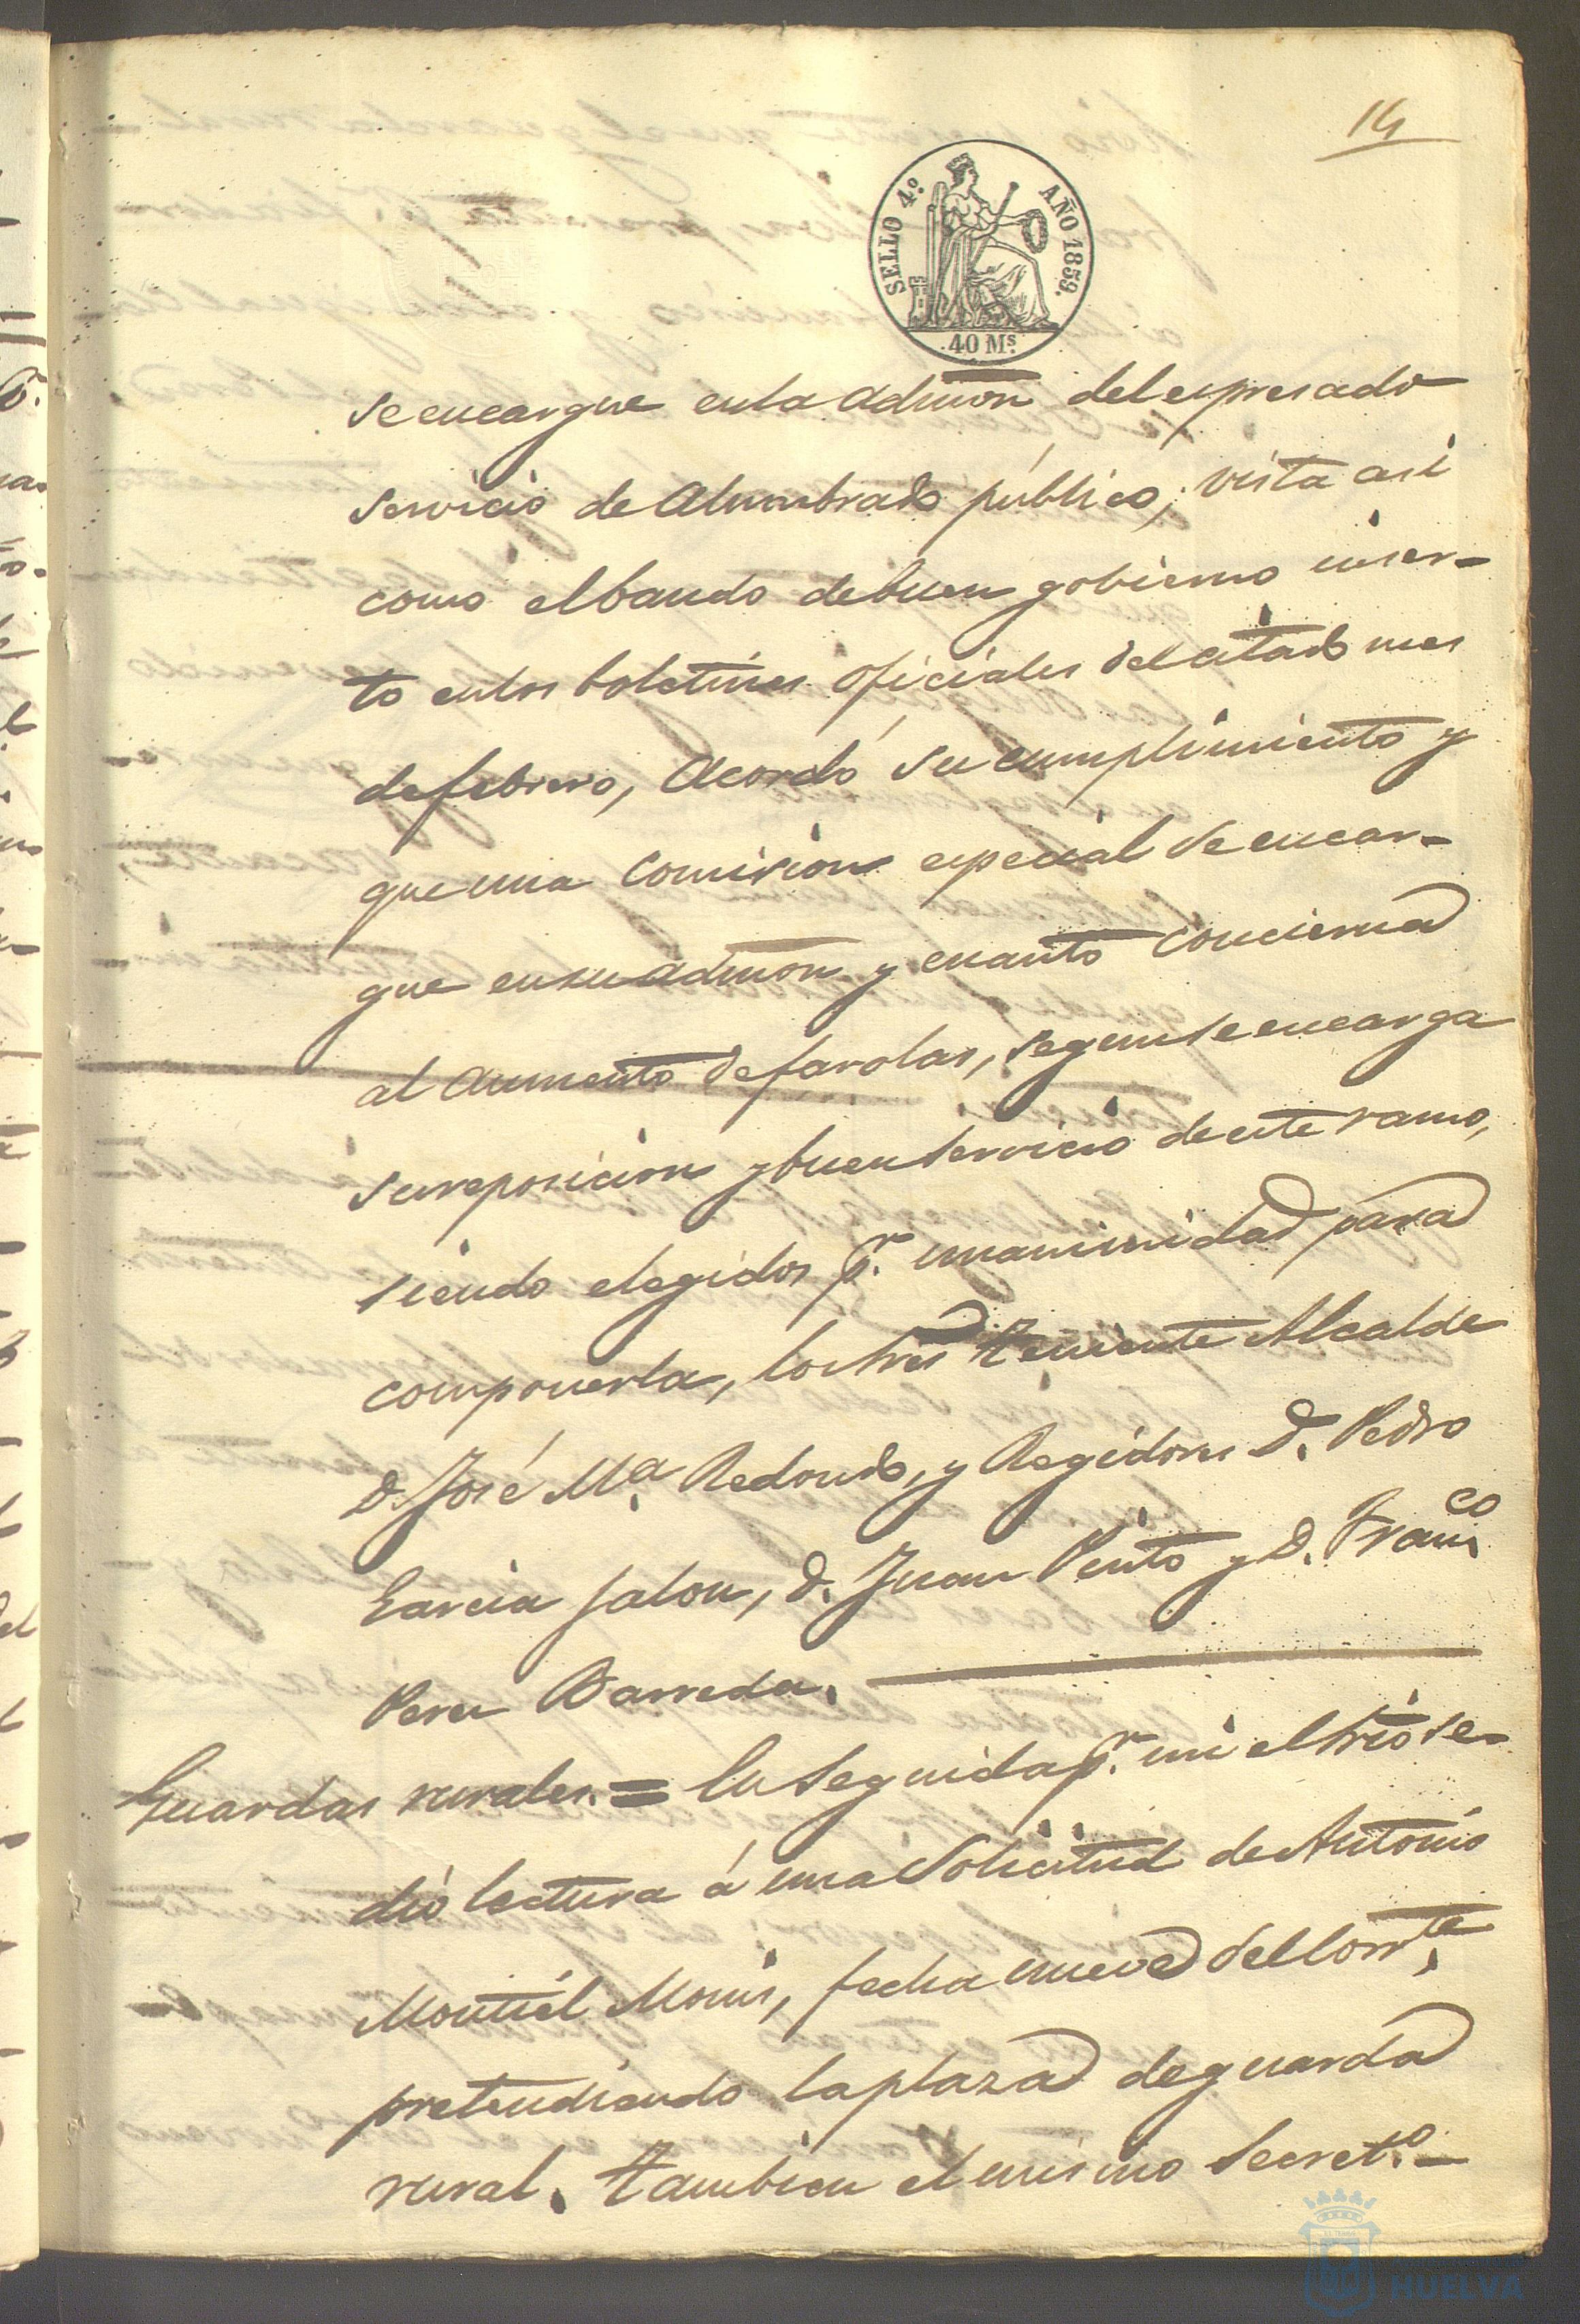 14
SELLO 4º. AÑO 1859.
40 Ms.
se encargue en la admon del espresado
servicio de Alumbrado público; vista asi
como el bando de buen gobierno inser-
to en los boletines oficiales del citado mes
de febrero, Acordó su cumplimiento y
que una Comision especial se encar-
gue en su admon y cuanto concierna
al aumento de farolas, segun se encarga
su reposicion y buen servicio de este ramo,
siendo elegidos pr. unanimidad para
componerla, los Sres Teniente Alcalde
D. José Ma. Redondo, y Regidores D. Pedro
Garcia Jalon, D. Juan Pinto y D. Franco.
Perez Barreda.
Guardas rurales. = En seguida pr. mi el Srio se
dió lectura á una Solicitud de Antonio
Montiel Monis, fecha nueve del Corrte.
pretendiendo la plaza de guarda
rural. Tambien el mismo Secreto.
HUELVA